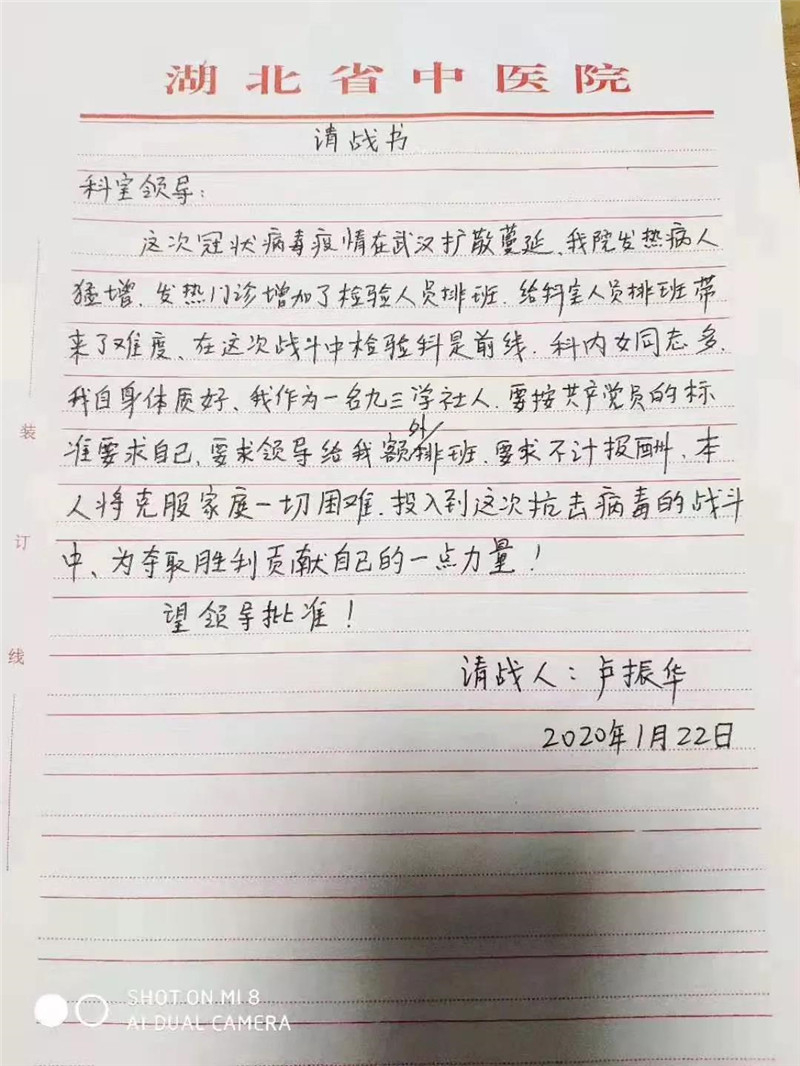 湖北省中医院
请战书
科室领导：
这次冠状病毒疫情在武汉扩散蔓延、我院发热病人
猛增、发热门诊增加了检验人员排班、给科室人员排班带
来了难度、在这次战斗中检验科是前线、科内女同志多、
我自身体质好、我作为一名九三学社人、要按共产党员的标
准要求自己、要求领导给我额外排班、要求不计报酬、本
人将克服家庭一切困难、投入到这次抗击病毒的战斗
中、为夺取胜利贡献自己的一点力量！
望领导批准！
请战人：卢振华
2020年1月22日
装
订
线
SHOT ON MI 8
AI DUAL CAMERA